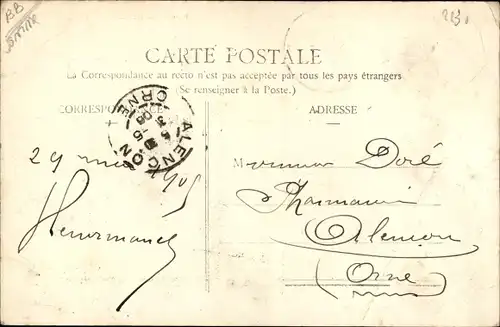 CARTE POSTALE
La Correspondance au recto n'est pas acceptée par tous les pays étrangers
(Se renseigner à la Poste.)
CORRESPONDANCE
ADRESSE
ALENÇON
ORNE
29 mai 1905
Monsieur Doré
Pharmacien
Alençon
(Orne)